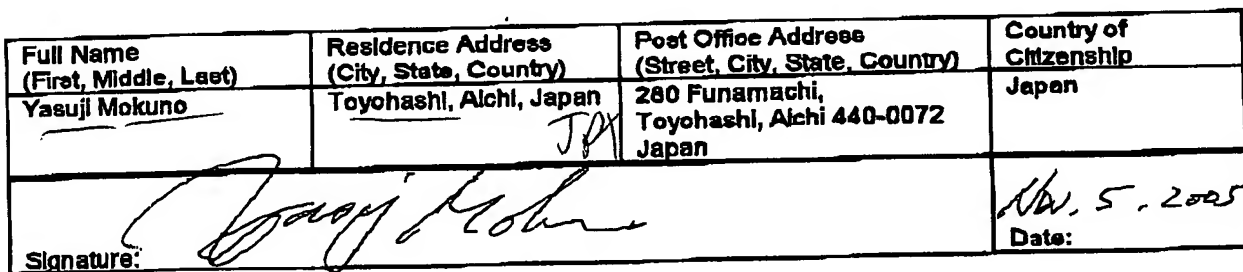 Full Name
(First, Middle, Last)
Residence Address
(City, State, Country)
Post Office Address
(Street, City, State, Country)
Country of
Citizenship
Yasuji Mokuno
Toyohashi, Aichi, Japan
JPX
280 Funamachi,
Toyohashi, Aichi 440-0072
Japan
Japan
Signature:
Nov. 5. 2005
Date: